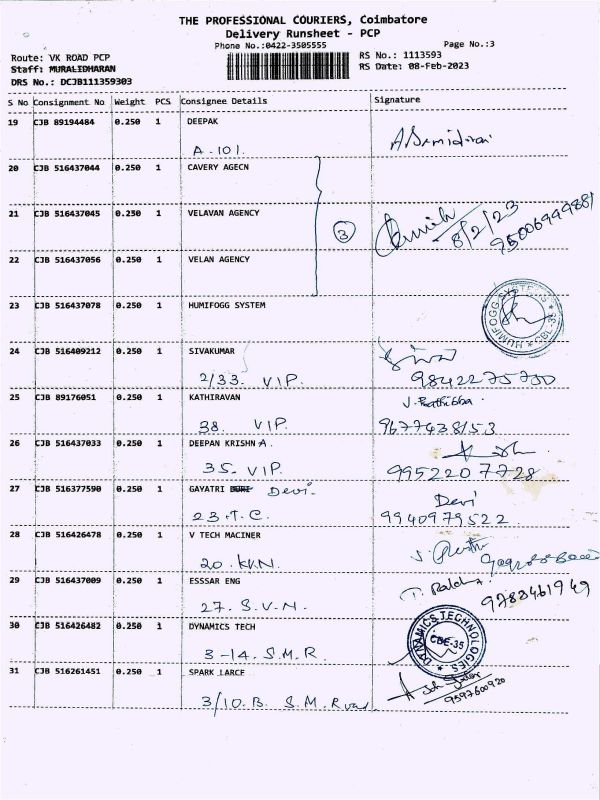 THE PROFESSIONAL COURIERS, Coimbatore
Delivery Runsheet - PCP
Phone No.:0422-3505555 Page No.:3
Route: VK ROAD PCP RS No.: 1113593
Staff: MURALIDHARAN RS Date: 08-Feb-2023
DRS No.: DCJB111359303
S No Consignment No Weight PCS Consignee Details Signature
19 CJB 89194484 0.250 1 DEEPAK
A-101.
20 CJB 516437044 0.250 1 CAVERY AGECN
21 CJB 516437045 0.250 1 VELAVAN AGENCY
3 8/2/23
22 CJB 516437056 0.250 1 VELAN AGENCY
23 CJB 516437078 0.250 1 HUMIFOGG SYSTEM
HUMIFOGG SYSTEMS CBE-35
24 CJB 516409212 0.250 1 SIVAKUMAR
2/33. VIP. 9842275750
25 CJB 89176051 0.250 1 KATHIRAVAN
38. VIP. 9677438153
26 CJB 516437033 0.250 1 DEEPAN KRISHN A.
35. VIP. 9952207728
27 CJB 516377590 0.250 1 GAYATRI Devi. Devi
23.T.C. 9940979522
28 CJB 516426478 0.250 1 V TECH MACINER
20. KVN.
29 CJB 516437009 0.250 1 ESSSAR ENG
27. S.V.N. 9783461949
30 CJB 516426482 0.250 1 DYNAMICS TECH
3-14. S.M.R. DYNAMICS TECHNOLOGIES CBE-35
31 CJB 516261451 0.250 1 SPARK LARCE
3/10.B. S.M.Road 9597600920